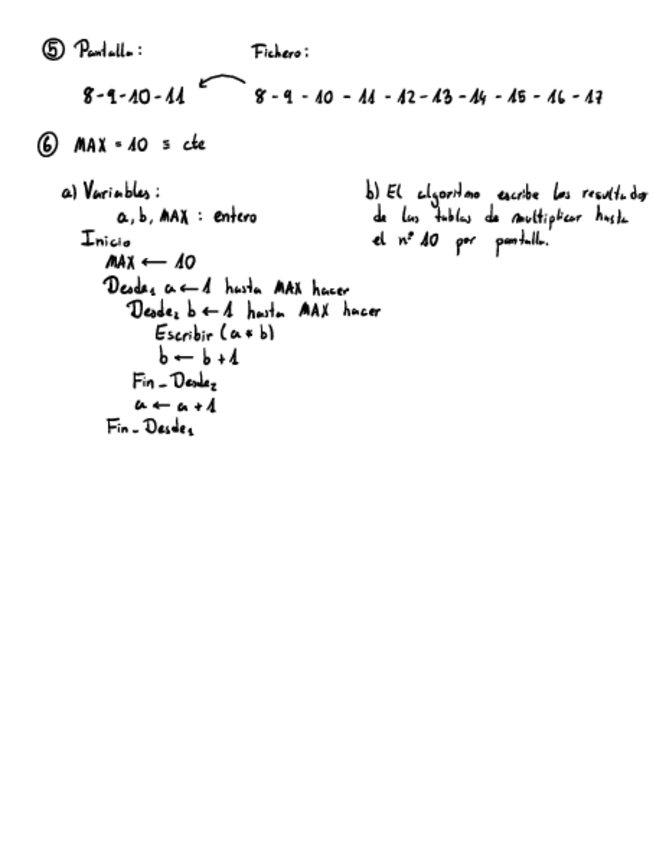 ⑤ Pantalla: Fichero:
8-9-10-11 8-9-10-11-12-13-14-15-16-17
⑥ MAX = 10 ≡ cte
a) Variables:
a, b, MAX : entero
Inicio
MAX ← 10
Desde₁ a ← 1 hasta MAX hacer
Desde₂ b ← 1 hasta MAX hacer
Escribir (a * b)
b ← b + 1
Fin_Desde₂
a ← a + 1
Fin_Desde₁
b) El algoritmo escribe los resultados
de las tablas de multiplicar hasta
el nº 10 por pantalla.